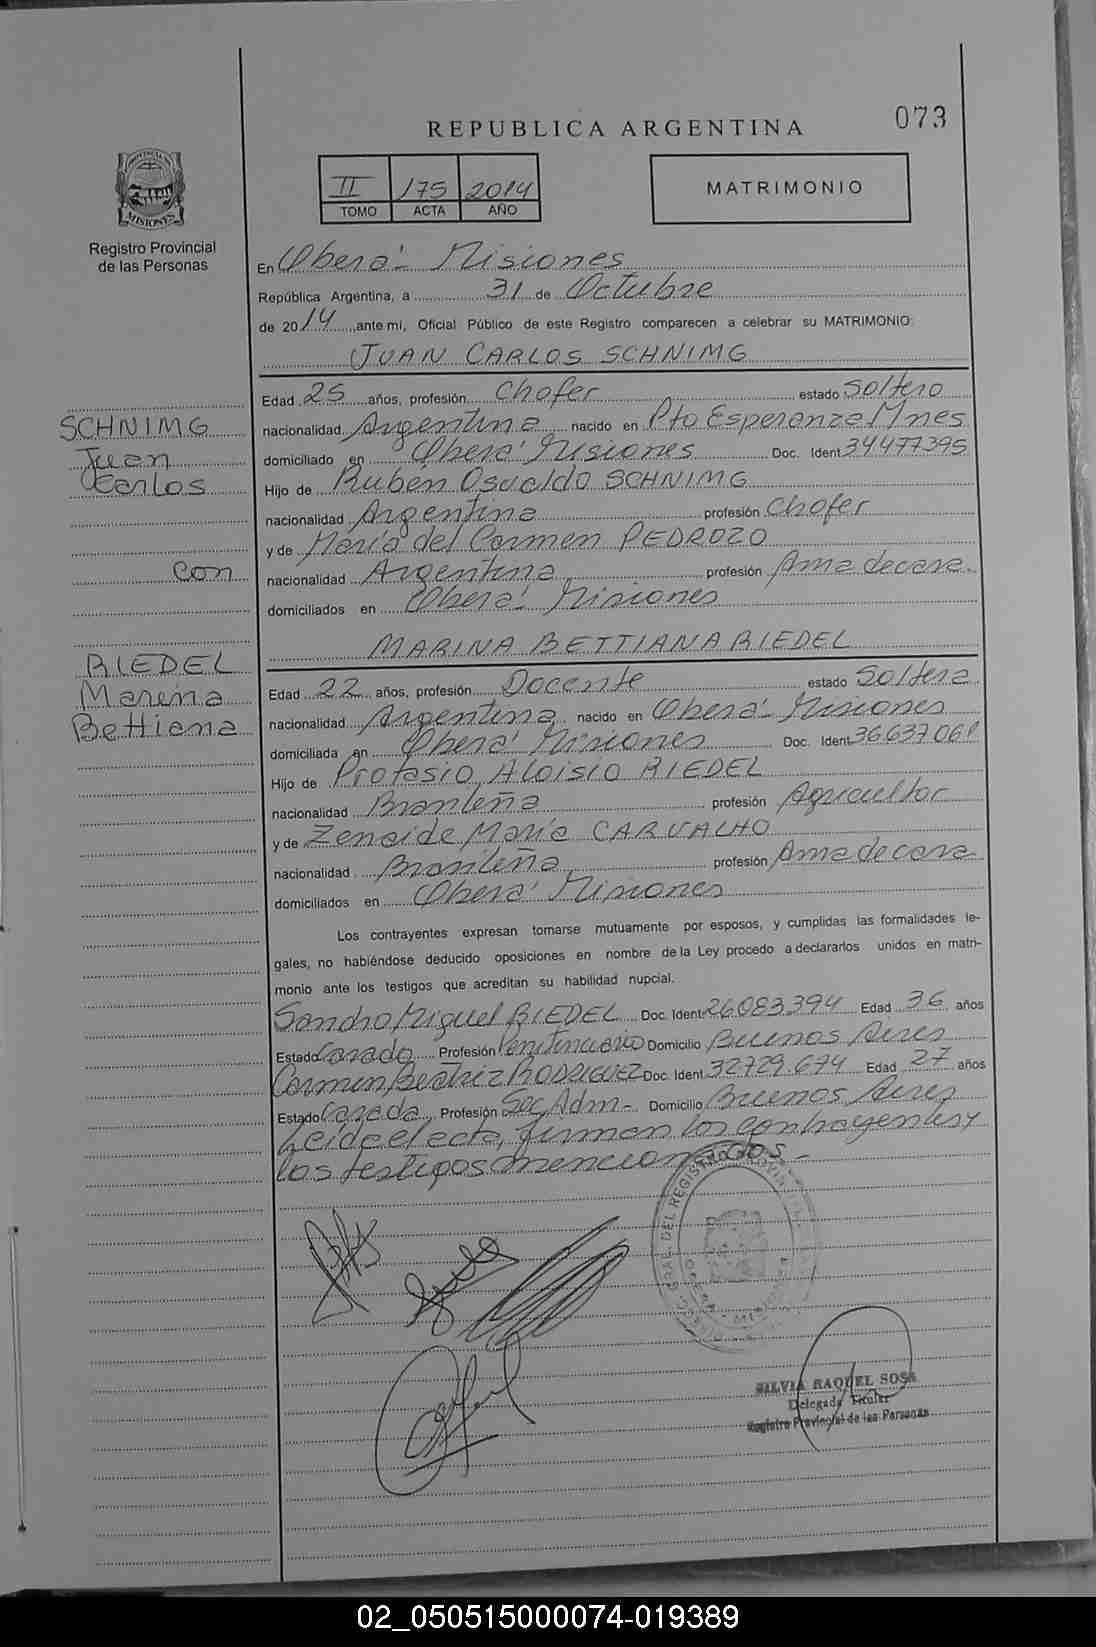 073
REPUBLICA ARGENTINA
II 175 2014
TOMO ACTA AÑO
MATRIMONIO
PROVINCIA DE
MISIONES
Registro Provincial
de las Personas
En Oberá - Misiones
República Argentina, a 31 de Octubre
de 2014, ante mi, Oficial Público de este Registro comparecen a celebrar su MATRIMONIO:
JUAN CARLOS SCHNIMG
Edad 25 años, profesión Chofer estado Soltero
nacionalidad Argentina nacido en Pto Esperanza Mnes
domiciliado en Oberá Misiones Doc. Ident 34477395
Hijo de Rubén Osvaldo SCHNIMG
nacionalidad Argentina profesión Chofer
y de María del Carmen PEDROZO
nacionalidad Argentina profesión Ama de casa.
domiciliados en Oberá - Misiones
SCHNIMG
Juan
Carlos
con
RIEDEL
Marina
Bettiana
MARINA BETTIANA RIEDEL
Edad 22 años, profesión Docente estado Soltera
nacionalidad Argentina nacido en Oberá - Misiones
domiciliada en Oberá Misiones Doc. Ident 36637061
Hijo de Protasio Aloisio RIEDEL
nacionalidad Brasileña profesión Agricultor
y de Zenaide María CARVALHO
nacionalidad Brasileña profesión Ama de casa
domiciliados en Oberá Misiones
Los contrayentes expresan tomarse mutuamente por esposos, y cumplidas las formalidades le-
gales, no habiéndose deducido oposiciones en nombre de la Ley procedo a declararlos unidos en matri-
monio ante los testigos que acreditan su habilidad nupcial.
Sandro Miguel RIEDEL Doc. Ident 26083394 Edad 36 años
Estado Casado Profesión Penitenciario Domicilio Buenos Aires
Carmen Beatriz RODRIGUEZ Doc. Ident 32729.674 Edad 27 años
Estado Casada, Profesión Sec Adm- Domicilio Buenos Aires
Leida el acta, firman los contrayentes y
los testigos mencionados -
SILVIA RAQUEL SOSA
Delegada Titular
Registro Provincial de las Personas
02_050515000074-019389